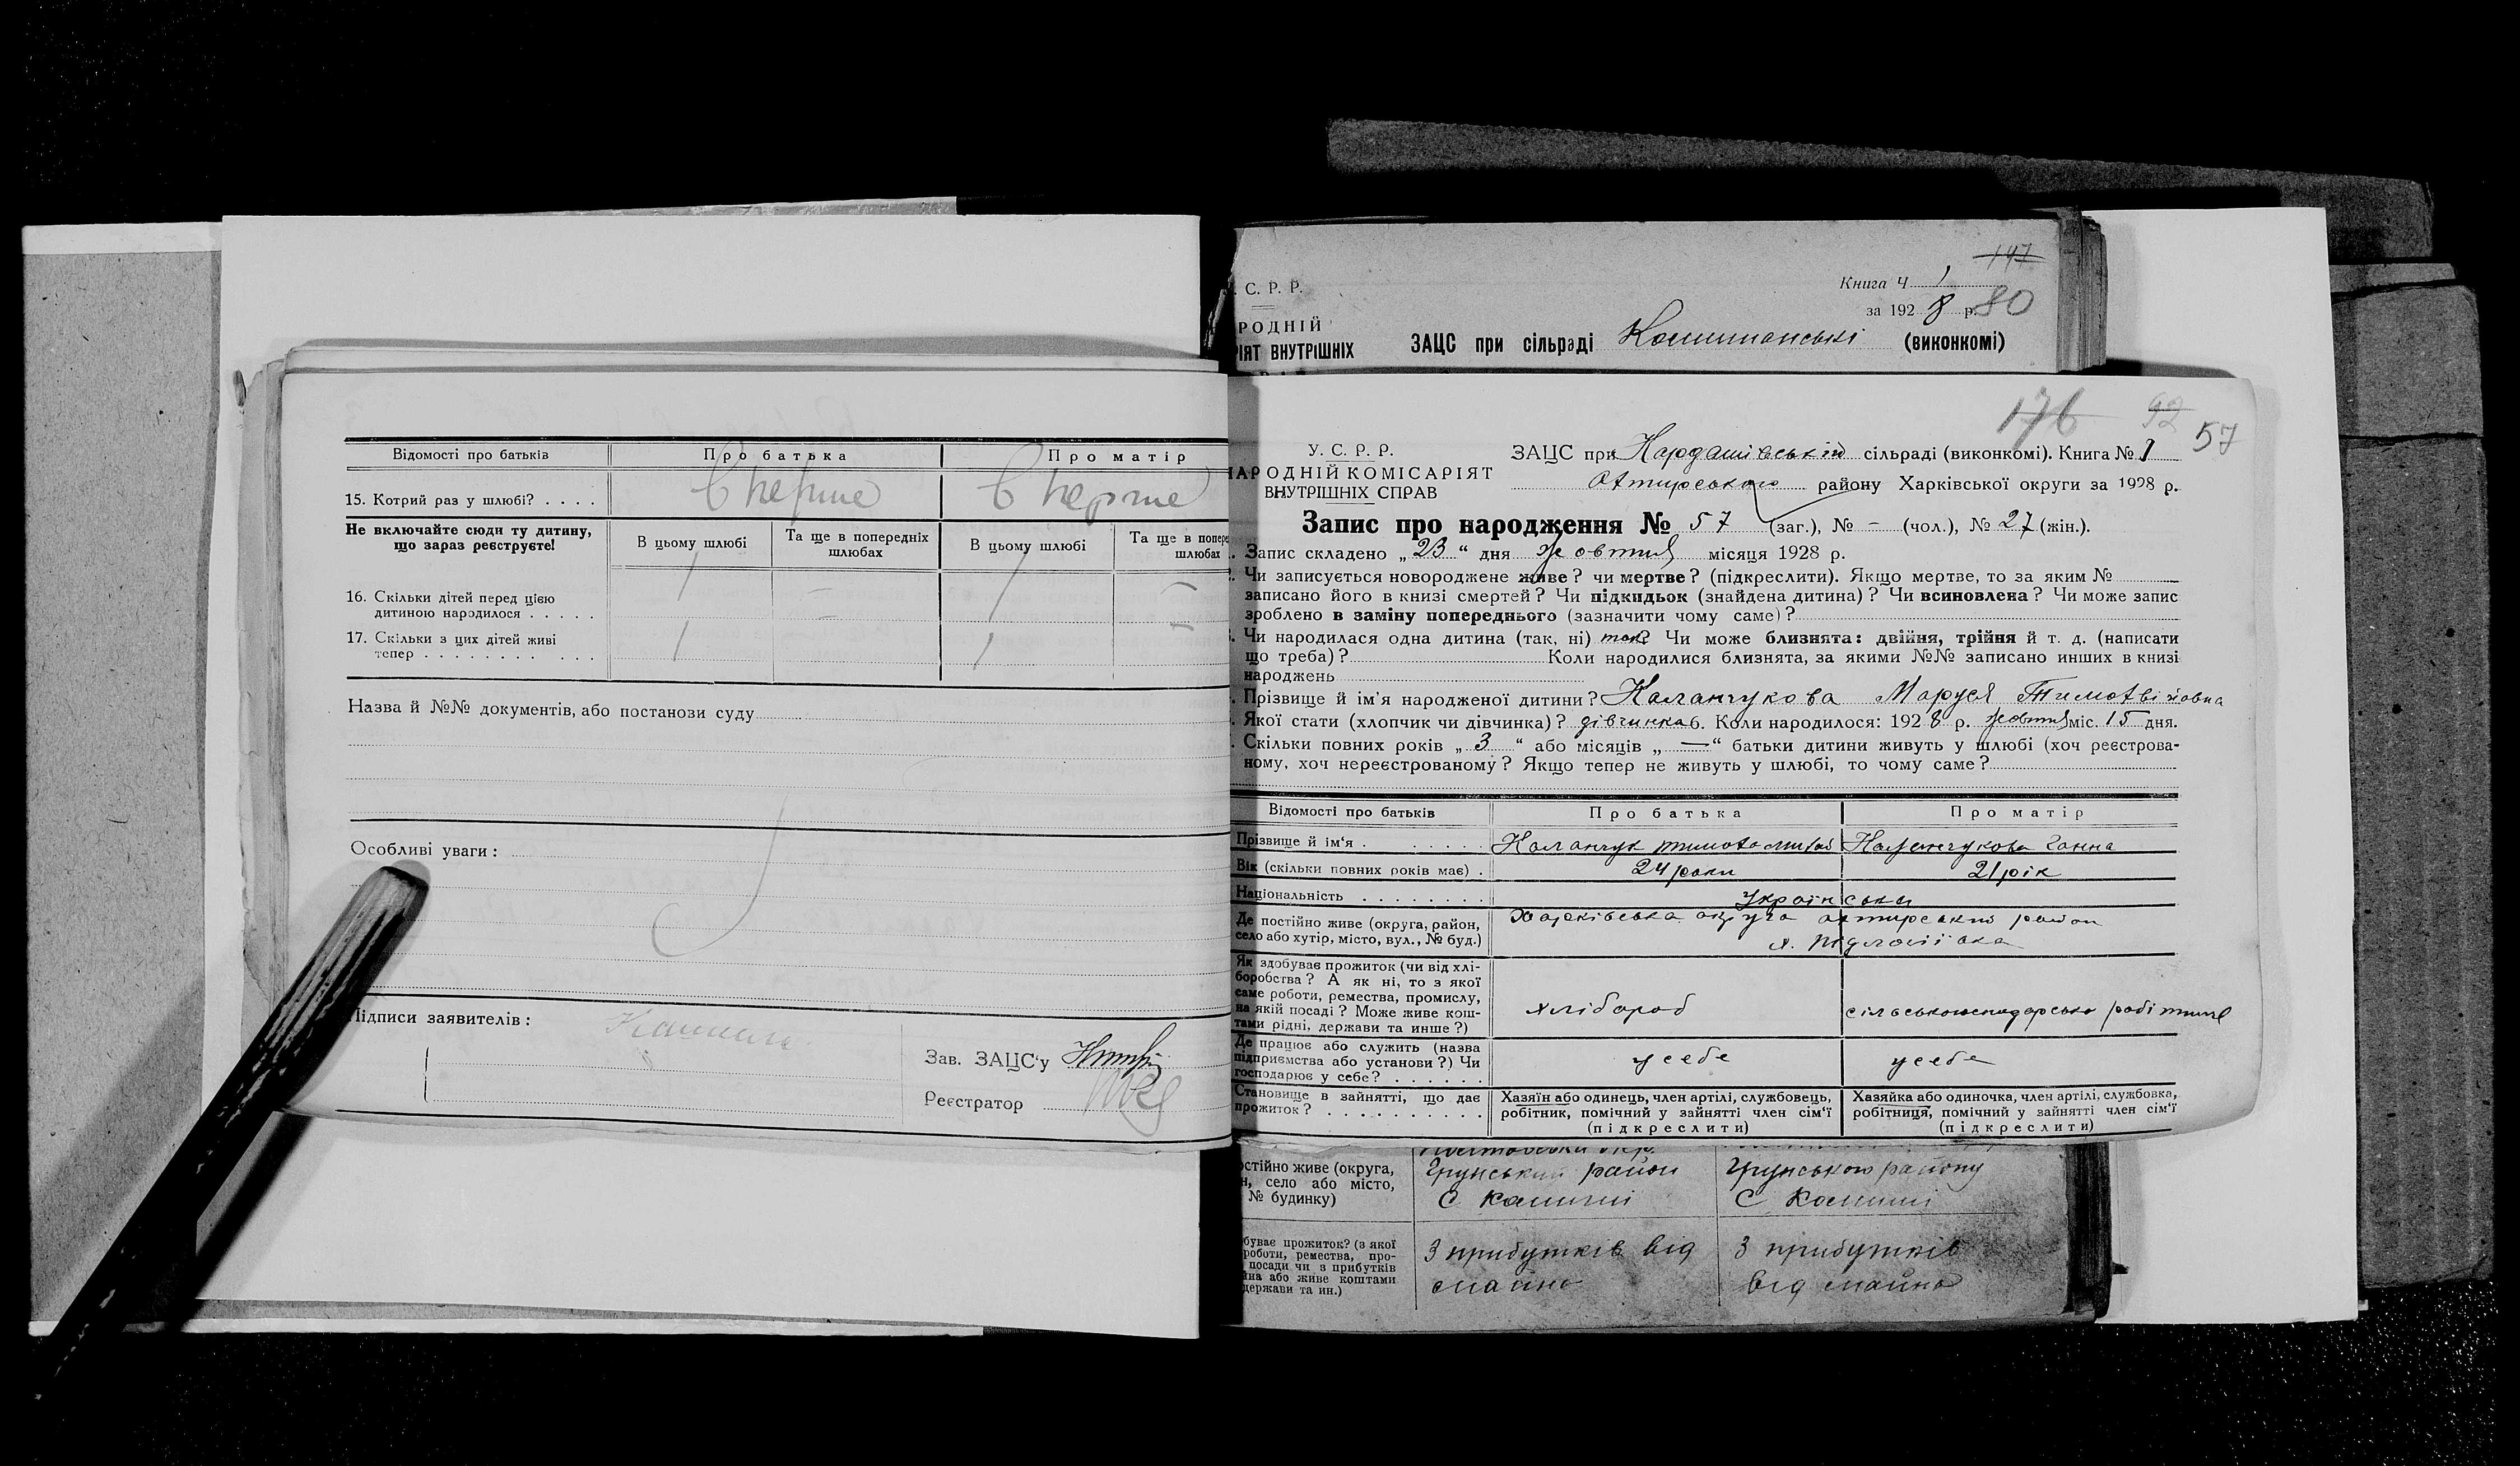 Відомості про батьків
Про батька
Про матір
15. Котрий раз у шлюбі? . . . .
Вперше
Вперше
Не включайте сюди ту дитину,
що зараз реєструєте!
В цьому шлюбі
Та ще в попередніх
шлюбах
В цьому шлюбі
Та ще в попере
шлюбах
16. Скільки дітей перед цією
дитиною народилося . . . . .
1 – 1 –
17. Скільки з цих дітей живі
тепер . . . . . . . . . . .
1 1 –
Назва й №№ документів, або постанови суду
Особливі уваги:
Підписи заявителів:
Зав. ЗАЦС'у
Реєстратор
147
. С. Р. Р.
Книга Ч 1
за 1928 р. 80
РОДНІЙ
РІЯТ ВНУТРІШНІХ
ЗАЦС при сільраді (виконкомі)
176 92 57
У. С. Р. Р.
НАРОДНІЙ КОМІСАРІЯТ
ВНУТРІШНІХ СПРАВ
ЗАЦС при Кардашівській сільраді (виконкомі). Книга № 1
Охтирського району Харківської округи за 1928 р.
Запис про народження № 57 (заг.), № – (чол.), № 27 (жін.).
. Запис складено „23“ дня Жовтня місяця 1928 р.
. Чи записується новороджене живе? чи мертве? (підкреслити). Якщо мертве, то за яким №
записано його в книзі смертей? Чи підкидьок (знайдена дитина)? Чи всиновлена? Чи може запис
зроблено в заміну попереднього (зазначити чому саме)?
. Чи народилася одна дитина (так, ні) так? Чи може близнята: двійня, трійня й т. д. (написати
що треба)? Коли народилися близнята, за якими №№ записано инших в книзі
народжень
. Прізвище й ім'я народженої дитини? Каланчукова Маруся
. Якої стати (хлопчик чи дівчинка)? дівчинка 6. Коли народилося: 1928 р. жовтня міс. 15 дня.
. Скільки повних років „3“ або місяців „—“ батьки дитини живуть у шлюбі (хоч реєстрова-
ному, хоч нереєстрованому? Якщо тепер не живуть у шлюбі, то чому саме?
Відомості про батьків
Про батька
Про матір
Прізвище й ім'я . . . . . .
Каланчук
Каланчукова Ганна
Вік (скільки повних років має) .
24 роки
21 рік
Національність . . . . . . . .
Українська
Де постійно живе (округа, район,
село або хутір, місто, вул., № буд.)
Харківська округа Охтирський район
х.
Як здобуває прожиток (чи від хлі-
боробства? А як ні, то з якої
саме роботи, ремества, промислу,
на якій посаді? Може живе кош-
тами рідні, держави та инше?)
хлібороб
сільськогосподарська робітниця
Де працює або служить (назва
підприємства або установи?) Чи
господарює у себе? . . . . . .
у себе
у себе
Становище в зайнятті, що дає
прожиток? . . . . . . . . . .
Хазяїн або одинець, член артілі, службовець,
робітник, помічний у зайнятті член сім'ї
(підкреслити)
Хазяйка або одиночка, член артілі, службовка,
робітниця, помічний у зайнятті член сім'ї
(підкреслити)
остійно живе (округа,
н, село або місто,
№ будинку)
Грунський район
С Комиші
Грунського району
С Комиші
буває прожиток? (з якої
роботи, ремества, про-
посади чи з прибутків
йна або живе коштами
держави та ин.)
З прибутків від
майна
З прибутків
від майна